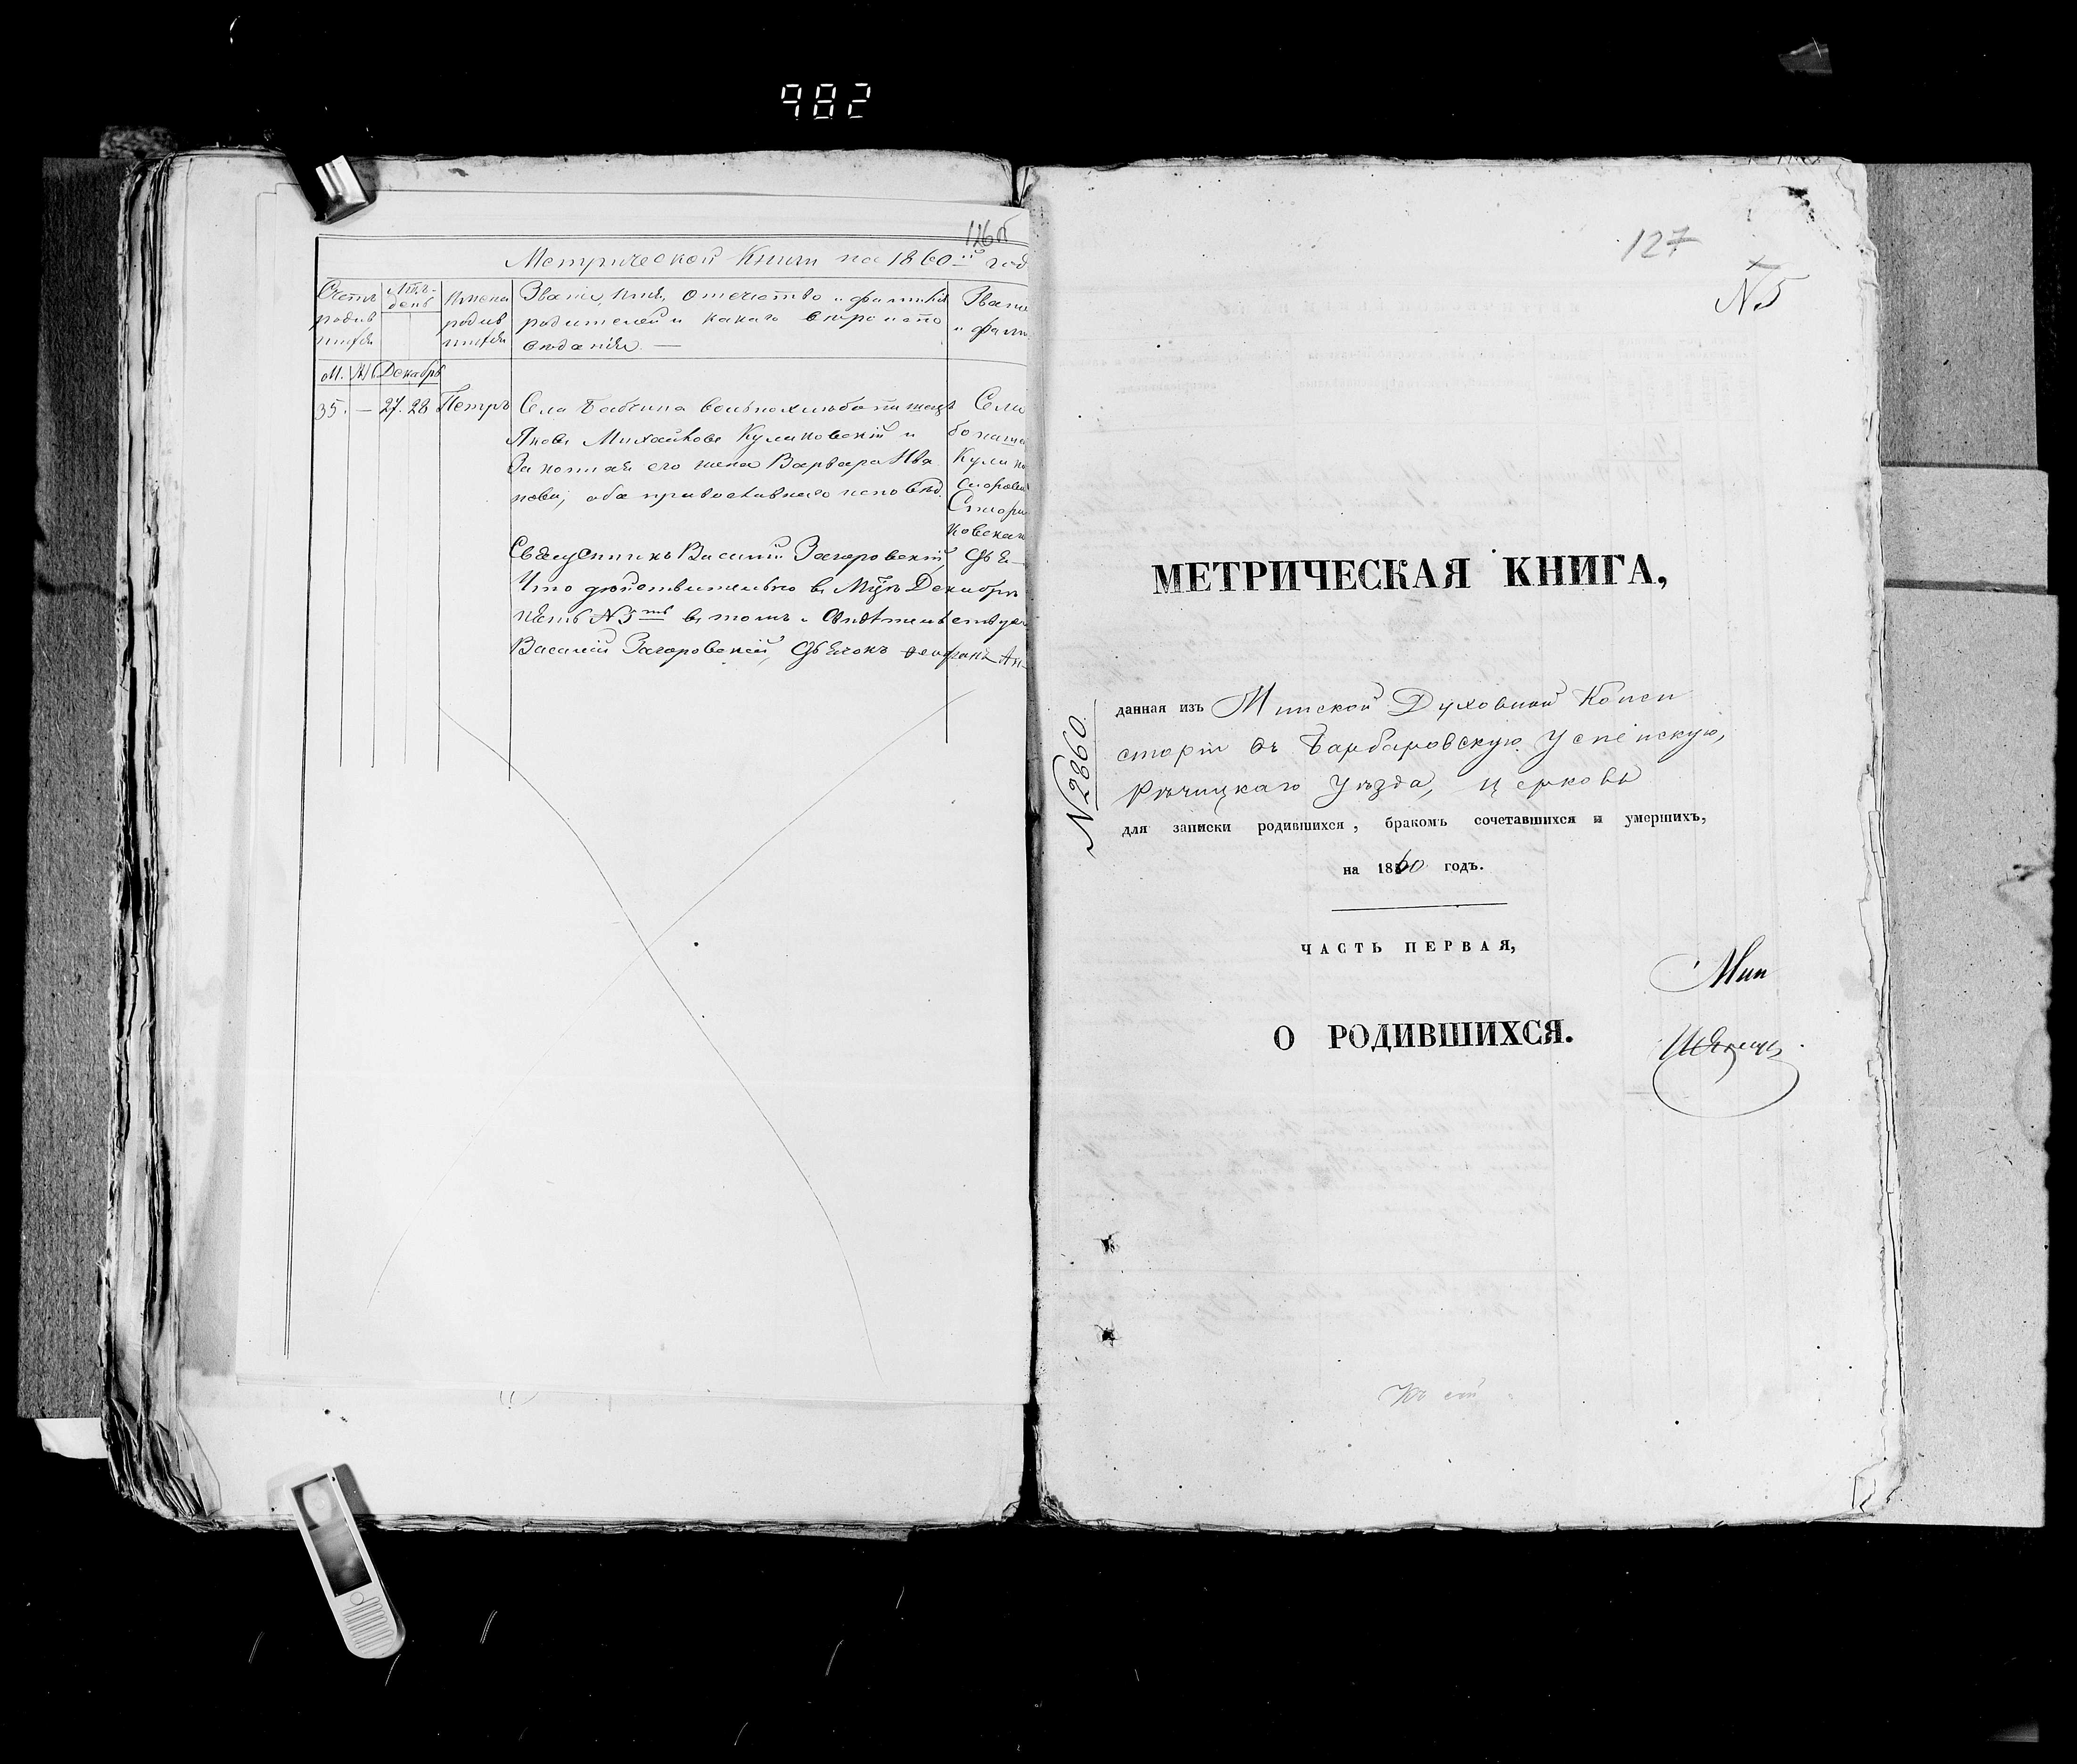 982
126б
Метрической Книги на 1860й год
Счетъ родив шихся
Мць- день
Имена родив шихся
Званіе, имя, отечество и фамилія
родителей и какого вѣроиспо
вѣданія. —
Звані
и фами
М. Ж. Декабрь
35. — 27. 28 Петръ Села Бабчина вольнохлѣбопашецъ
Яковъ Михайловъ Куликовскій и
Законная его жена Варвара Ива
нова, оба православнаго исповѣд.
Села
бопаше
Кулико
Священникъ Василій Загоровскій, Дья
Что дѣйствительно въ Мцѣ Декабрѣ
въ томъ свидѣтельствуе
Василій Загоровскій, Дьячокъ
127
№5
МЕТРИЧЕСКАЯ КНИГА,
№2860
данная изъ Минской Духовной Конси
сторіи въ Барбаровскую Успенскую,
Рѣчицкаго Уѣзда, церковь
для записки родившихся, бракомъ сочетавшихся и умершихъ,
на 1860 годъ.
ЧАСТЬ ПЕРВАЯ,
Мин
О РОДИВШИХСЯ.